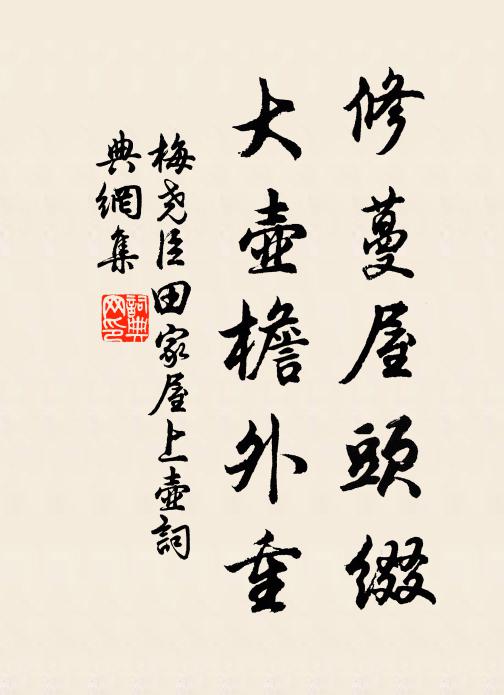 修蔓屋頭綴
大壺檐外垂
梅堯臣田家屋上壺詞
典網集
詞典
网印